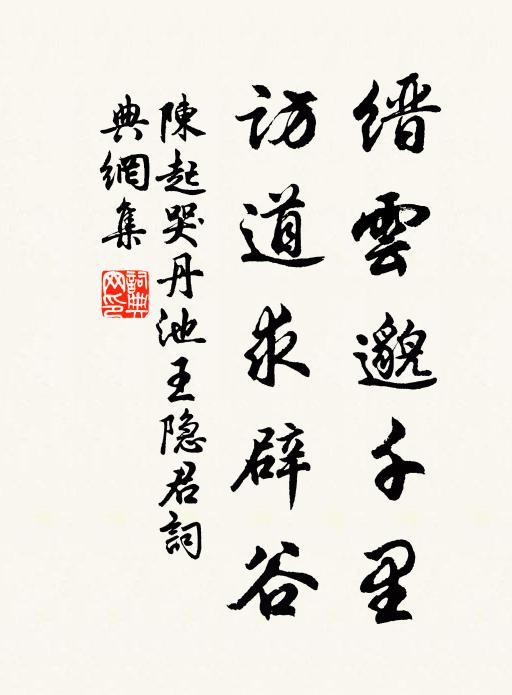 缙雲邈千里
訪道求辟谷
陳起哭丹池王隐君詞
典網集
詞典網印